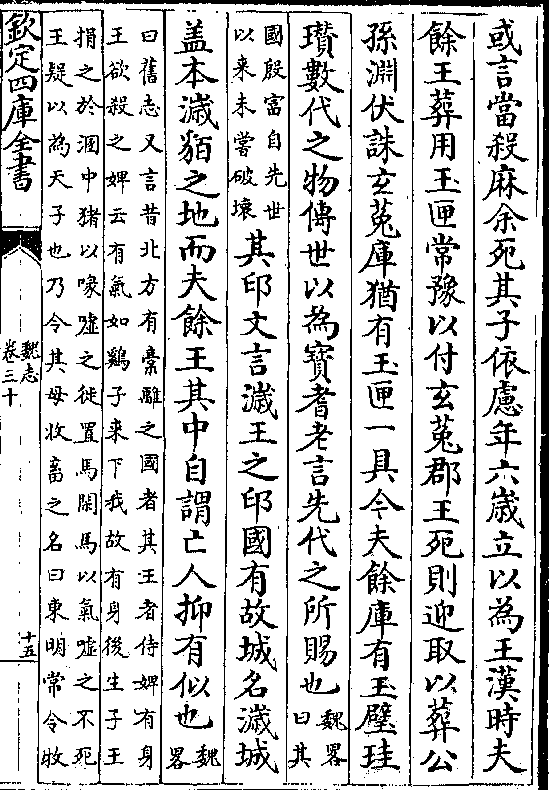 或言當殺麻余死其子依慮年六歳立以為王漢時夫
餘王葬用玉匣常豫以付玄菟郡王死則迎取以葬公
孫淵伏誅玄菟庫猶有玉匣一具今夫餘庫有玉璧珪
瓚數代之物傳世以為寳耆老言先代之所賜也魏畧
曰其
國殷富自先世
以來未嘗破壊
其印文言濊王之印國有故城名濊城
盖本濊貊之地而夫餘王其中自謂亡人抑有似也魏
畧
曰舊志又言昔北方有橐離之國者其王者侍婢有身
王欲殺之婢云有氣如鷄子來下我故有身後生子王
捐之於溷中猪以喙嘘之徙置馬閑馬以氣嘘之不死
王疑以為天子也乃令其母收畜之名曰東明常令牧
欽定四庫全書
魏志
卷三十
十五